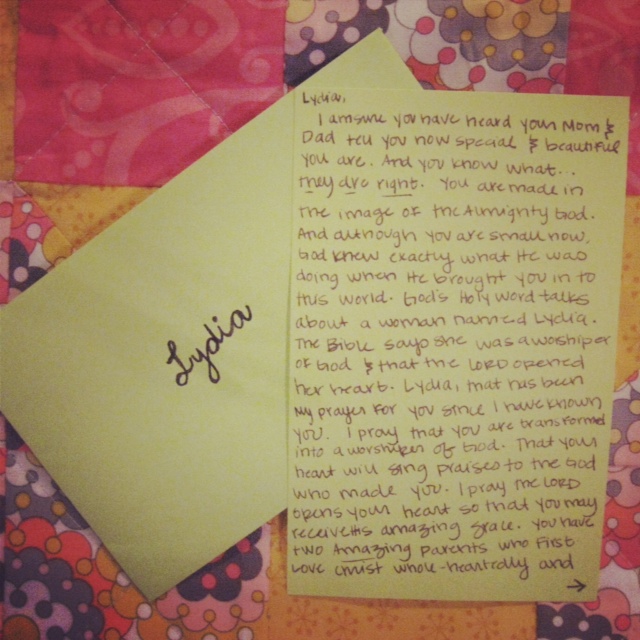 Lydia
Lydia,
I am sure you have heard your Mom &
Dad tell you how special & beautiful
you are. And you know what...
they are right. You are made in
the image of the Almighty God.
And although you are small now,
God knew exactly what He was
doing when He brought you in to
this world. God's Holy Word talks
about a woman named Lydia.
The Bible says she was a worshiper
of God & that the LORD opened
her heart. Lydia, that has been
my prayer for you since I have known
you. I pray that you are transformed
into a worshiper of God. That your
heart will sing praises to the God
who made you. I pray the LORD
opens your heart so that you may
receive His amazing grace. You have
two Amazing parents who first
love Christ whole-heartedly and
→